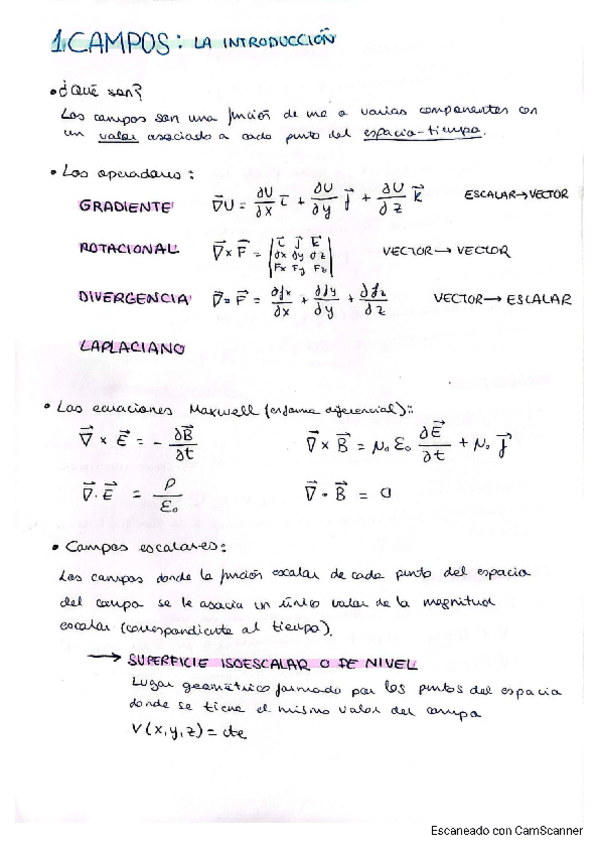 1. CAMPOS: LA INTRODUCCIÓN
• ¿Qué son?
Los campos son una función de una o varias componentes con
un valor asociado a cada punto del espacio-tiempo.
• Los operadores:
GRADIENTE ∇⃗U = ∂U/∂x i⃗ + ∂U/∂y j⃗ + ∂U/∂z k⃗ ESCALAR → VECTOR
ROTACIONAL ∇⃗ × F⃗ = | i⃗ j⃗ k⃗ ; ∂x ∂y ∂z ; Fx Fy Fz | VECTOR → VECTOR
DIVERGENCIA ∇⃗ · F⃗ = ∂fx/∂x + ∂fy/∂y + ∂fz/∂z VECTOR → ESCALAR
LAPLACIANO
• Las ecuaciones Maxwell (en forma diferencial):
∇⃗ × E⃗ = - ∂B⃗/∂t ∇⃗ × B⃗ = μ₀ ε₀ ∂E⃗/∂t + μ₀ J⃗
∇⃗ · E⃗ = ρ/ε₀ ∇⃗ · B⃗ = 0
• Campos escalares:
Los campos donde la función escalar de cada punto del espacio
del campo se le asocia un único valor de la magnitud
escalar (correspondiente al tiempo).
→ SUPERFICIE ISOESCALAR O DE NIVEL
Lugar geométrico formado por los puntos del espacio
donde se tiene el mismo valor del campo
V(x,y,z) = cte
Escaneado con CamScanner